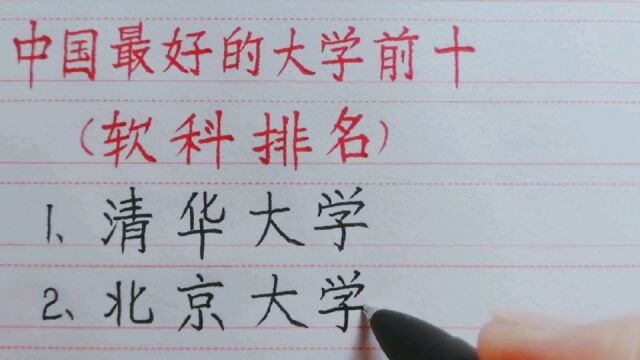 中国最好的大学前十
（软科排名）
1、清华大学
2、北京大学